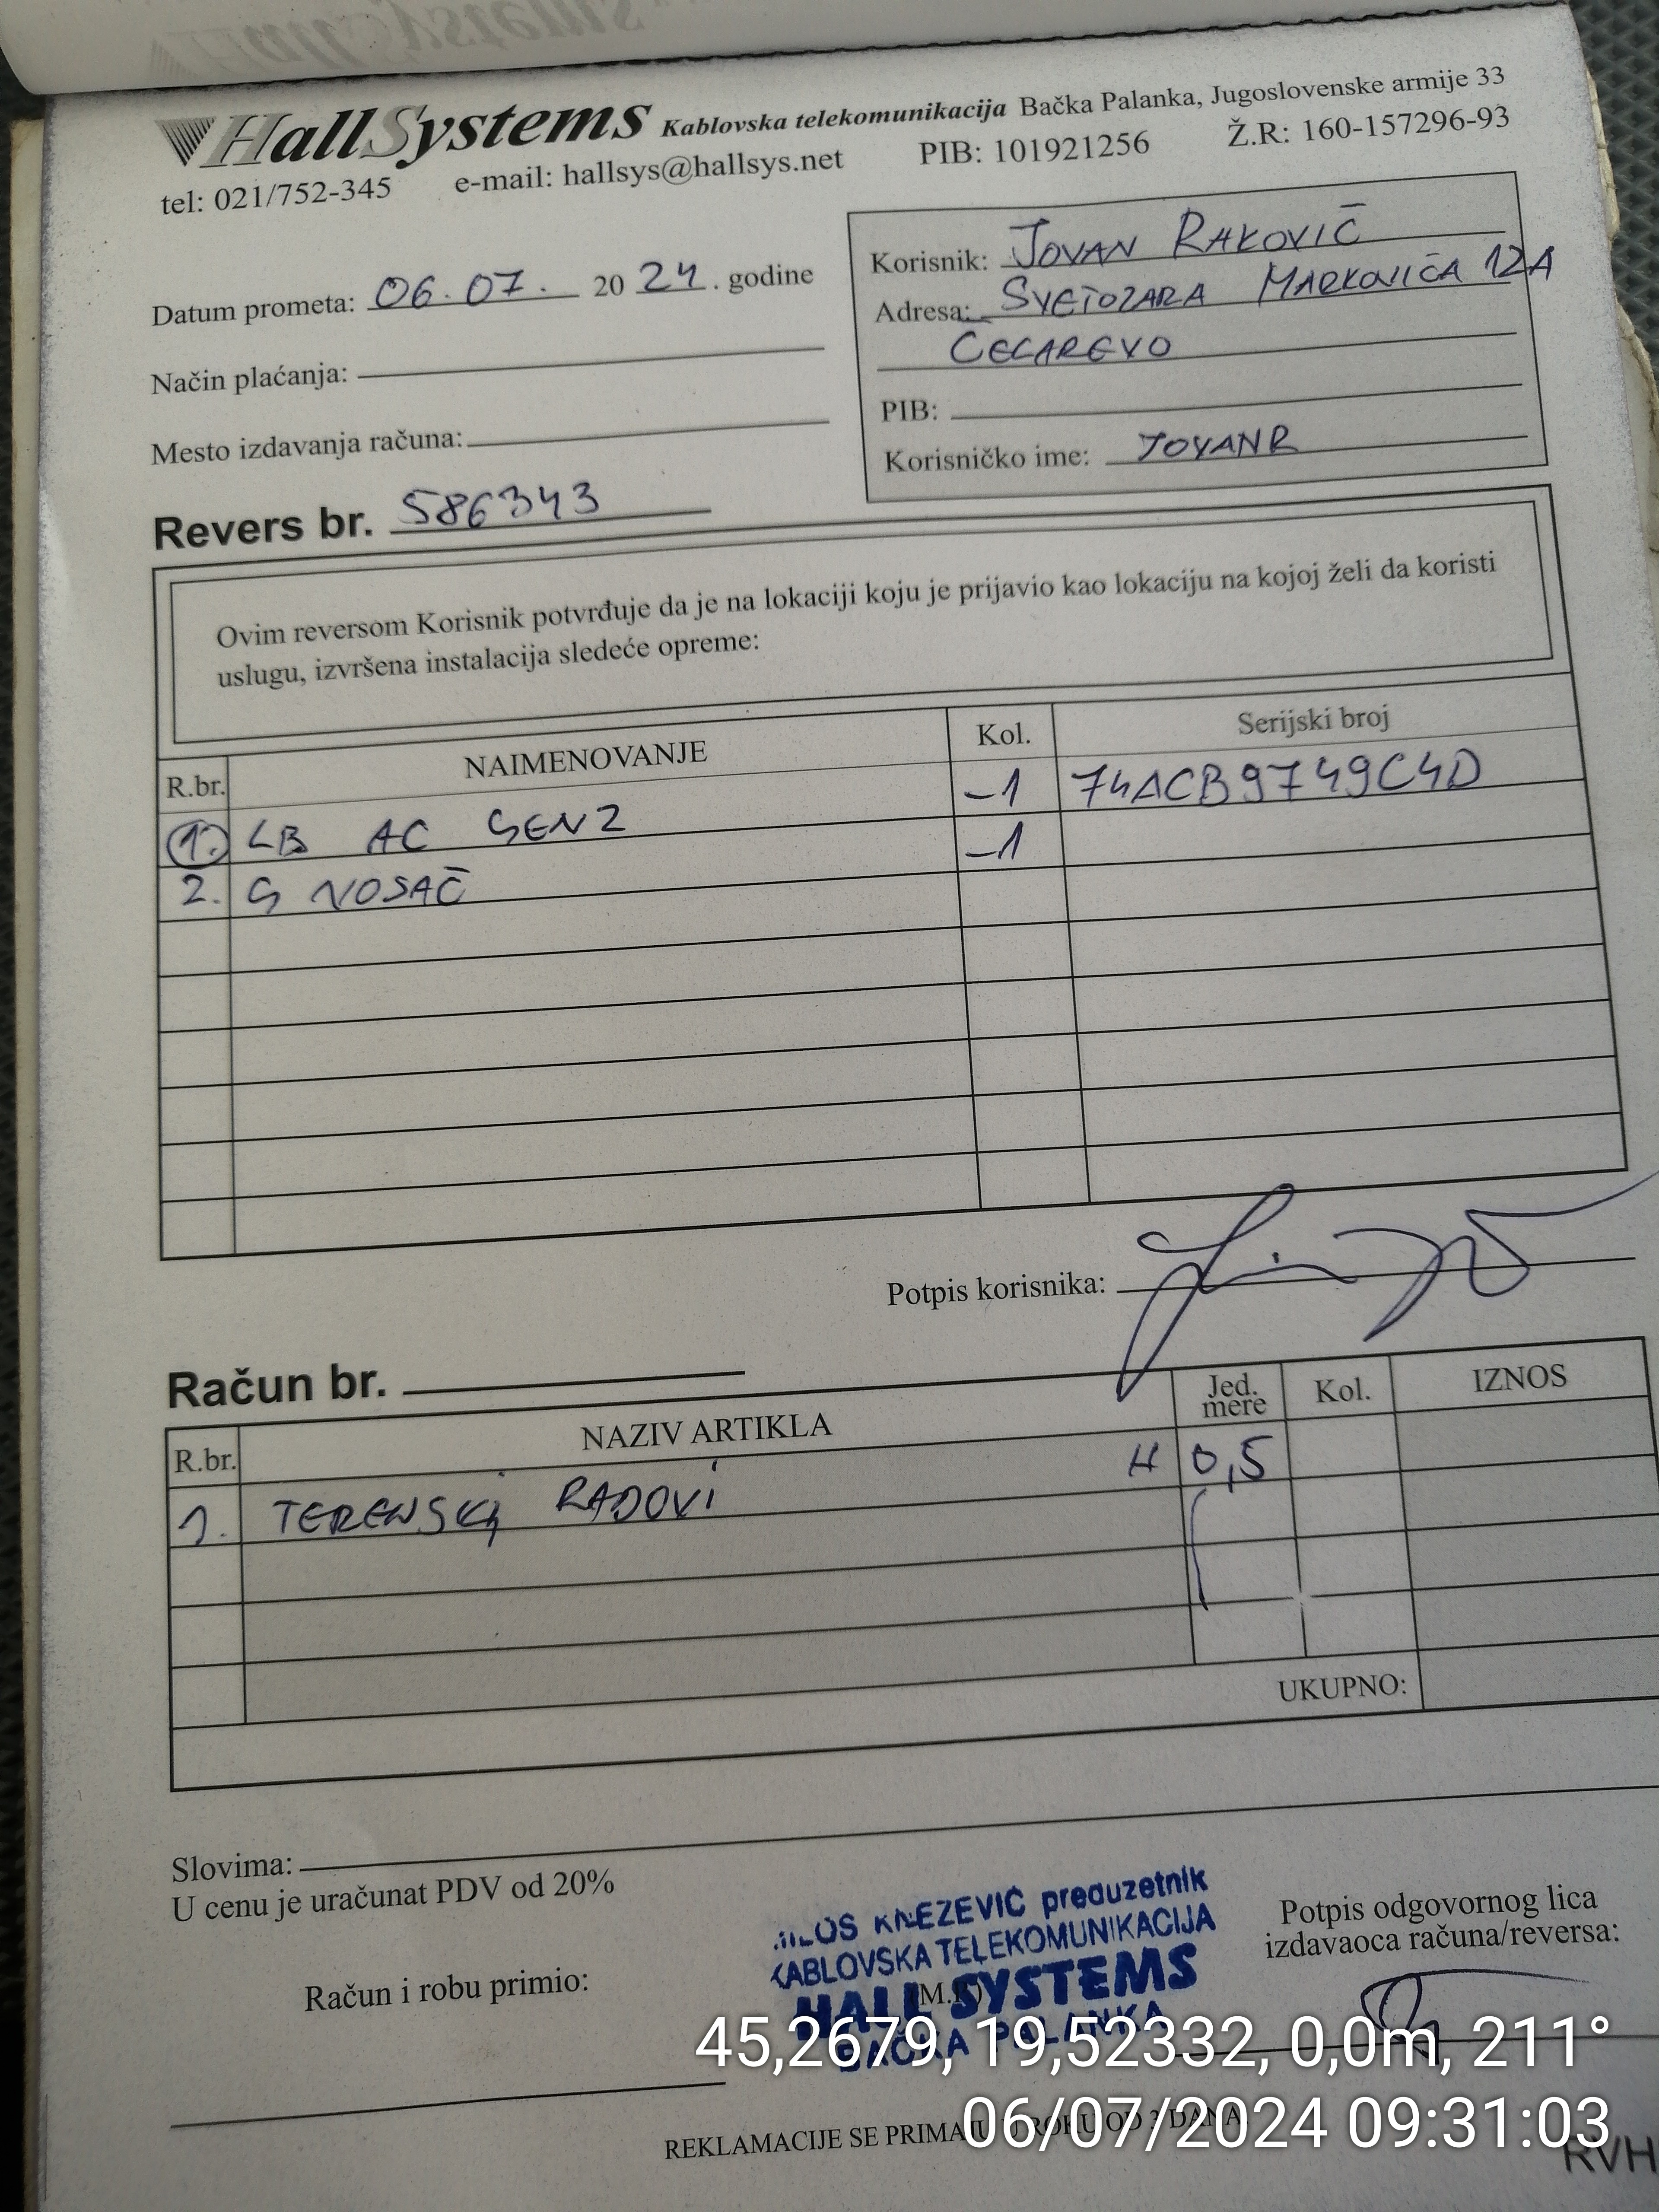 HallSystems Kablovska telekomunikacija Bačka Palanka, Jugoslovenske armije 33
tel: 021/752-345 e-mail: hallsys@hallsys.net PIB: 101921256 Ž.R: 160-157296-93
Datum prometa: 06.07. 2024. godine
Način plaćanja:
Mesto izdavanja računa:
Korisnik: JOVAN RAKOVIČ
Adresa: SVETOZARA MARKOVIČA 12A
ČELAREVO
PIB:
Korisničko ime: JOVANR
Revers br. 586343
Ovim reversom Korisnik potvrđuje da je na lokaciji koju je prijavio kao lokaciju na kojoj želi da koristi
uslugu, izvršena instalacija sledeće opreme:
R.br. NAIMENOVANJE Kol. Serijski broj
1. LB AC GEN2 -1 74ACB9749C4D
2. G NOSAČ -1
Potpis korisnika:
Račun br.
R.br. NAZIV ARTIKLA Jed. mere Kol. IZNOS
1. TERENSKI RADOVI H 0,5
UKUPNO:
Slovima:
U cenu je uračunat PDV od 20%
Račun i robu primio:
KNEZEVIĆ preduzetnik
KABLOVSKA TELEKOMUNIKACIJA
HALL SYSTEMS
BAČKA PALANKA
(M.P.)
Potpis odgovornog lica
izdavaoca računa/reversa:
45,2679, 19,52332, 0,0m, 211°
06/07/2024 09:31:03
REKLAMACIJE SE PRIMAJU U ROKU OD 3 DANA
RVH